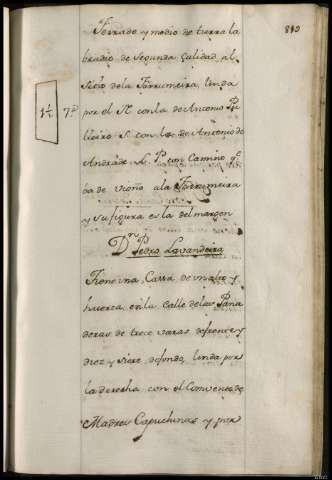 840
Ferrado y medio de tierra la
bradio de Segunda Calidad al
Sitio dela Forrumeira, linda
por el N. con la de Antonio
S. con la de Antonio de
Andrade L. P. con Camino q.e
ba de Vioño ala Forrumeira
y su figura es la del margen
1½ 7.a
D.n Pedro Lavandeira
Tiene una Cassa de un alto y
huerta en la Calle de las Pana
deras de trece varas de frente y
diez y siete de fondo, linda por
la derecha con el Convento de
Madres Capuchinas y por